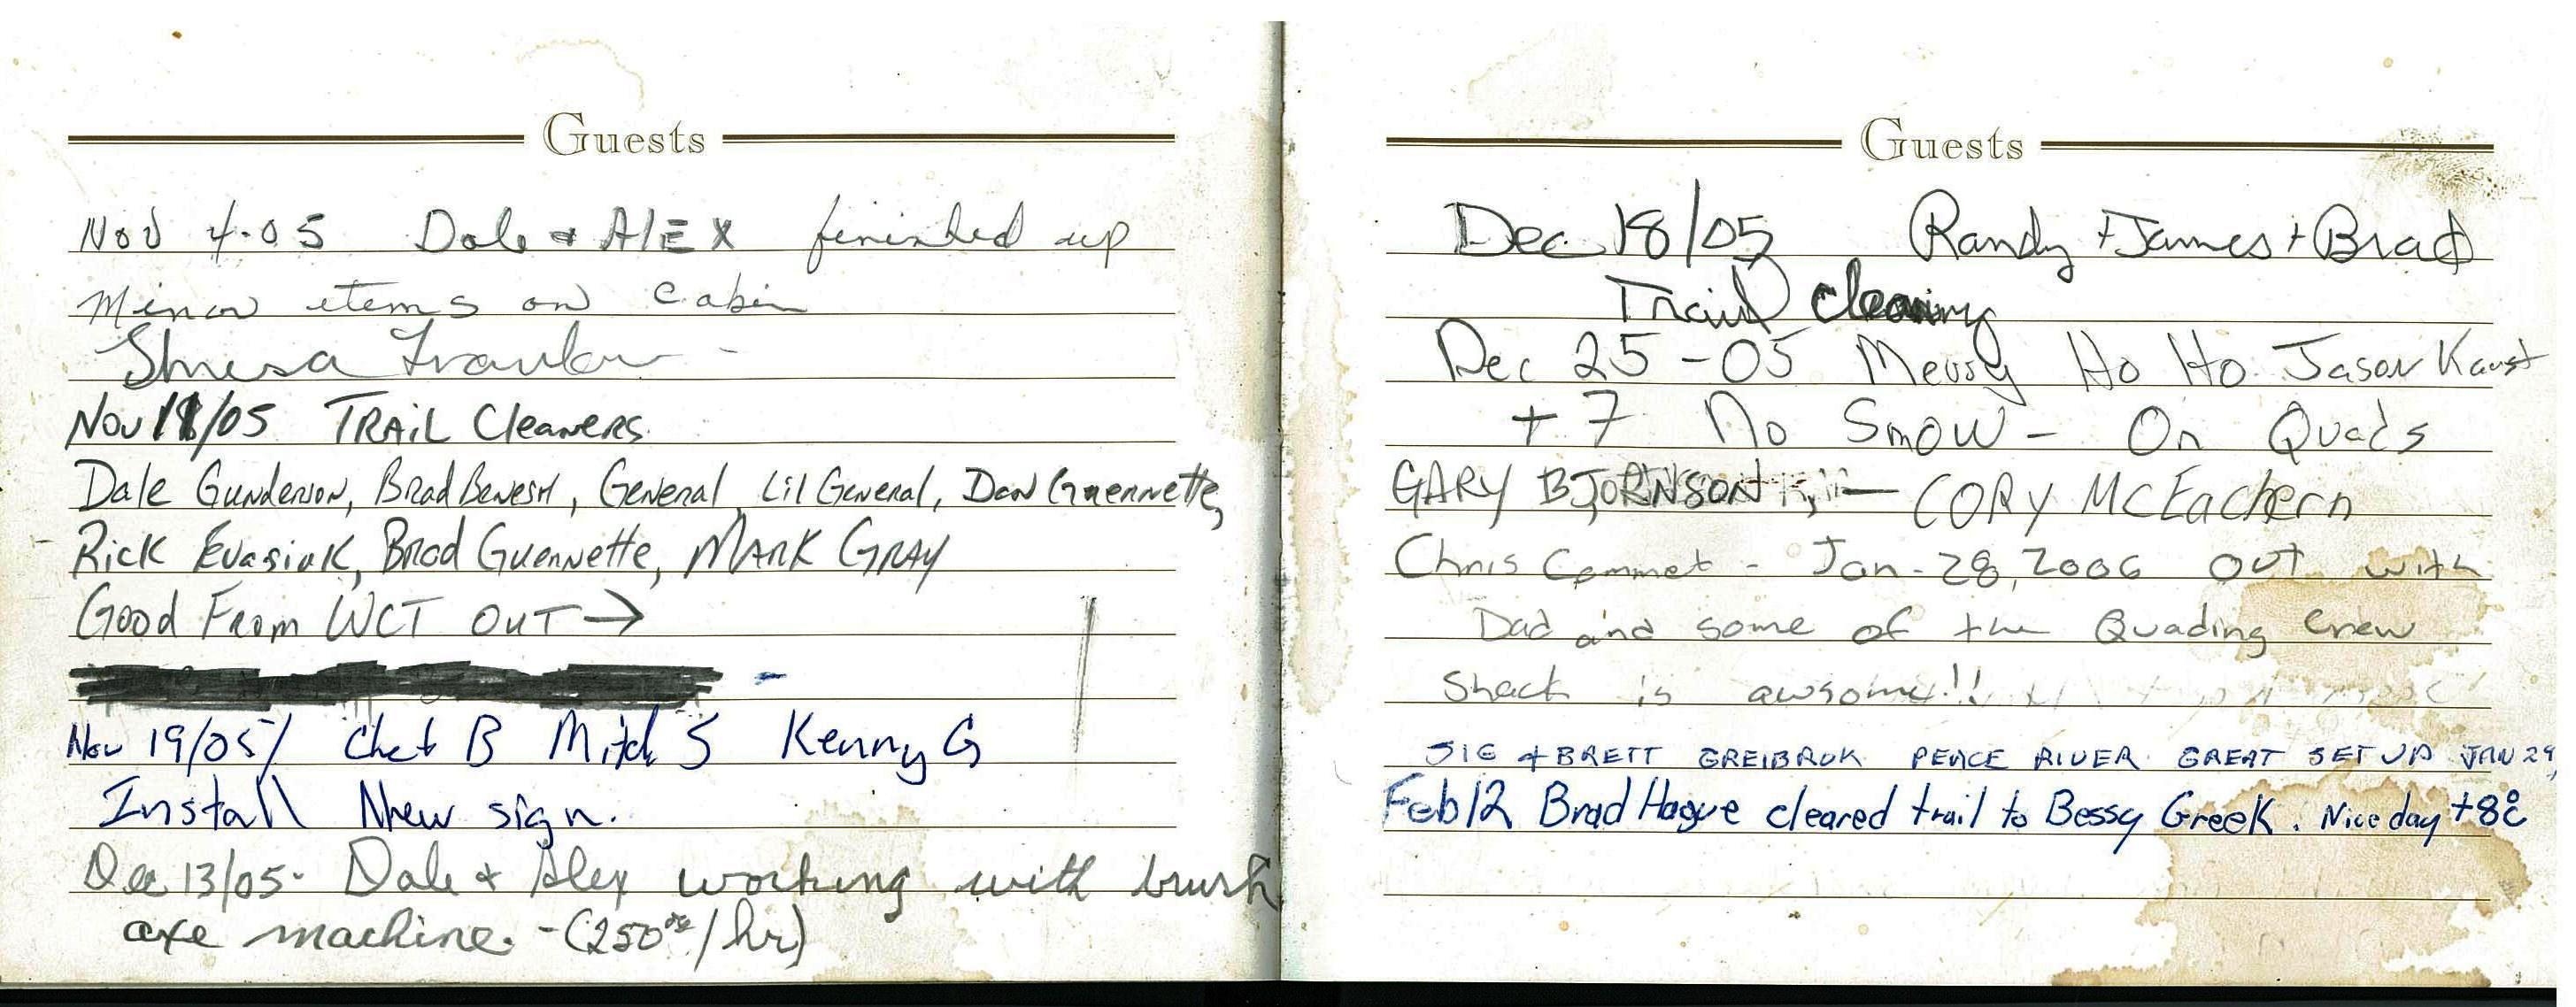 Guests
Nov 4-05 Dale & AlEX finished up
Minor items on cabin
Nov /05 TRAiL Cleaners
Dale Gunderson, Brad Benesh, General, Lil General, Dan Guennette,
Rick Evasiuk, Brad Guennette, MARK GRAY
Good From WCT OUT →
Nov 19/05/ Chet B Mitch S Kenny G
Install New sign.
Dec 13/05- Dale & Alex working with brush
axe machine. -(250⁰⁰/hr)
Guests
Dec 18/05 Randy + James + Brad
Trail cleaning
Dec 25-05 Merry Ho Ho Jason
+ 7 No Snow - On Quads
GARY BJORNSON — CORY McEachern
Chris - Jan-28, 2006 out with
Dad and some of the Quading Crew
Shack is awsome!!
SIG & BRETT GREIBROK PEACE RIVER GREAT SET UP JAN 29,
Feb 12 Brad Hague cleared trail to Bessy Greek. Nice day +8°c